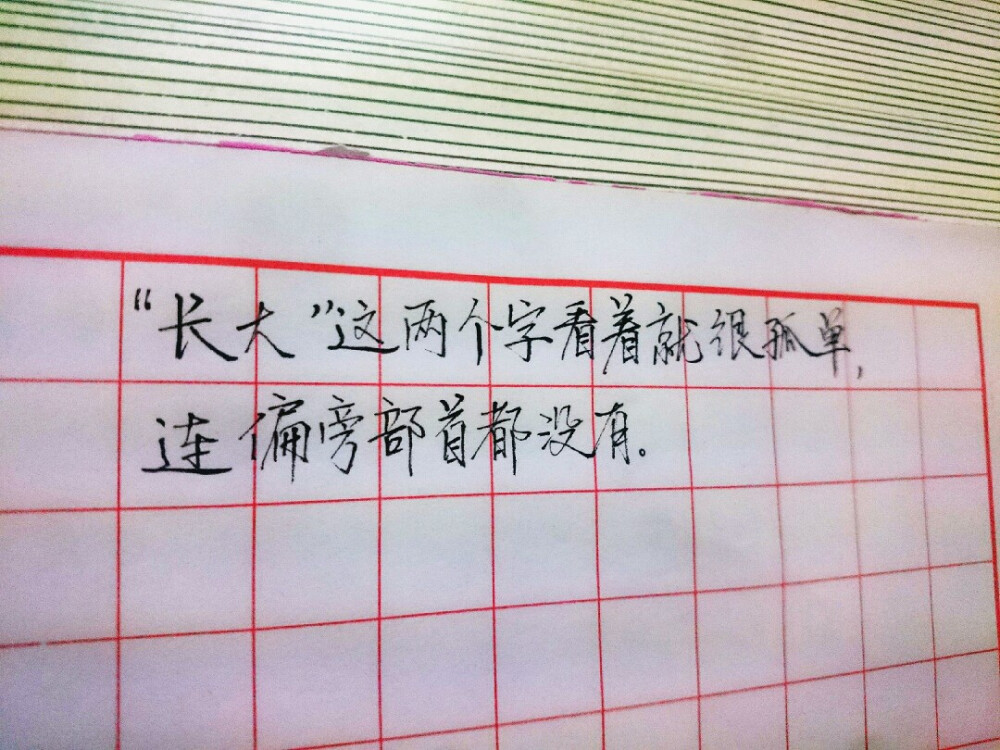 “长大”这两个字看着就很孤单,
连偏旁部首都没有.